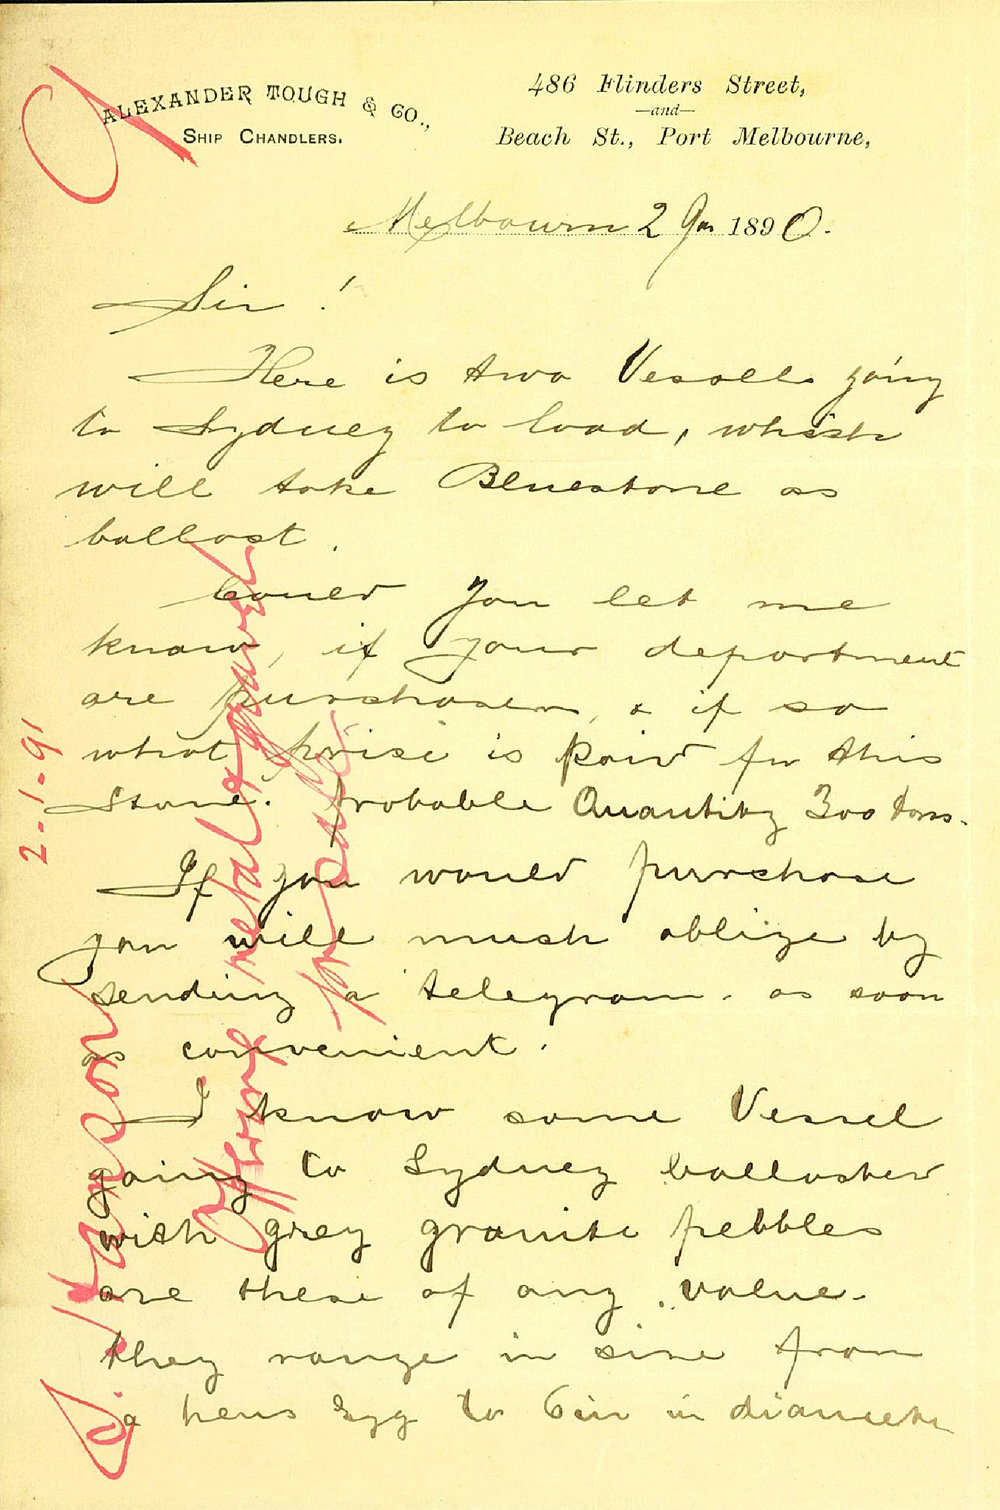 ALEXANDER TOUGH & CO.,
SHIP CHANDLERS.
486 Flinders Street,
—and—
Beach St., Port Melbourne,
Melbourn 2 Jan 1890.
Sir !
Here is two Vessells going
to Sydney to load, which
will take Bluestone as
ballast.
Could you let me
know, if your department
are purchasers, & if so
what prise is paid for this
Stone. Probable Quantity 300 tons.
If you would purchase
you will much oblige by
sending a telegram. as soon
as convenient.
I know some Vessel
going to Sydney ballasted
with grey granite pebbles
are these of any value.
they range in sise from
a hens Egg to 6in in diameter
2-1-91
Offering metal & gravel
for Sale.